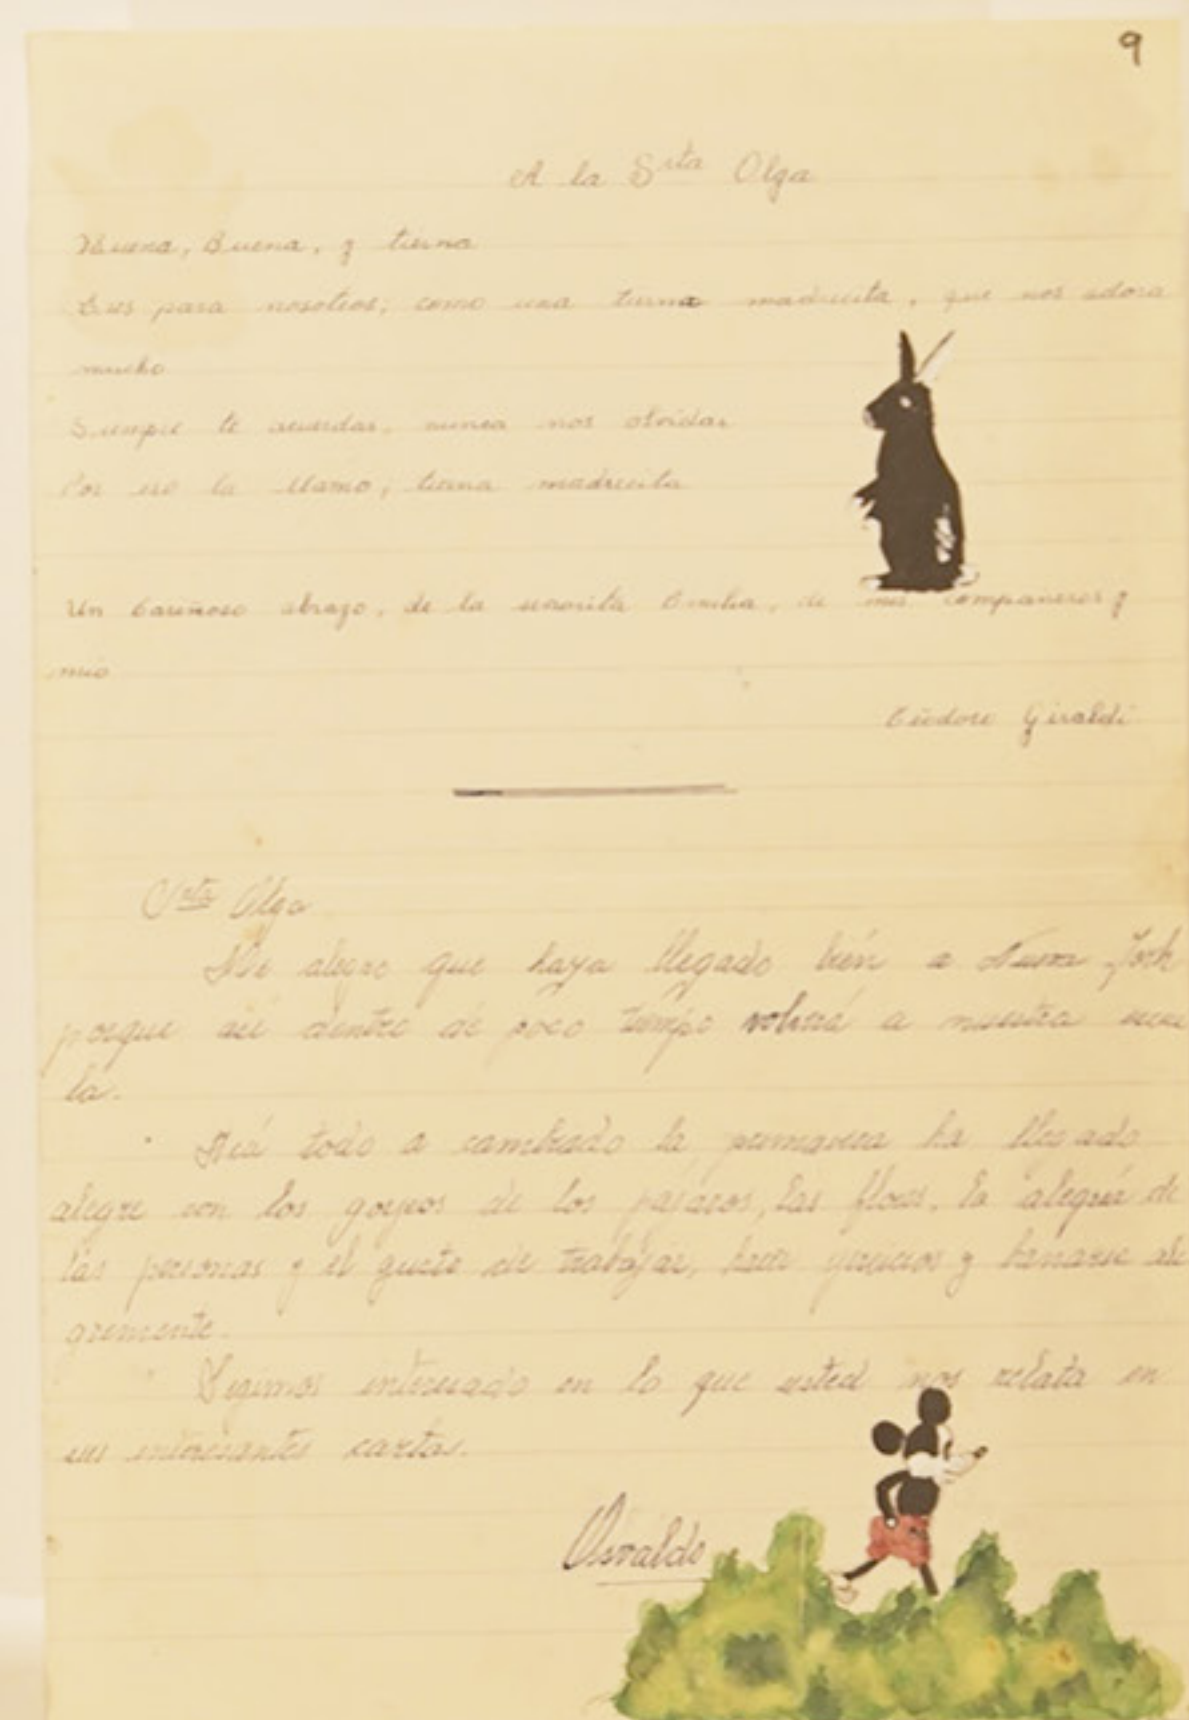 9
A la Srta Olga
Buena, Buena, y tierna
Eres para nosotros; como una tierna madrecita, que nos adora
mucho
Siempre te acuerdas, nunca nos olvidas
Por eso la llamo, tierna madrecita
Un Cariñoso abrazo, de la señorita Emilia, de mis compañeros y
mio
Teodoro Giraldi
Srta Olga
Me alegro que haya llegado bién a Nueva York
porque asi dentro de poco tiempo volverá a nuestra escue
la.
Acá todo a cambiado la primavera ha llegado
alegre con los gorjeos de los pajaros, las flores, la alegria de
las personas y el gusto de trabajar, hacer y ale
gremente.
Segimos interesado en lo que usted nos relata en
sus interesantes cartas.
Osvaldo